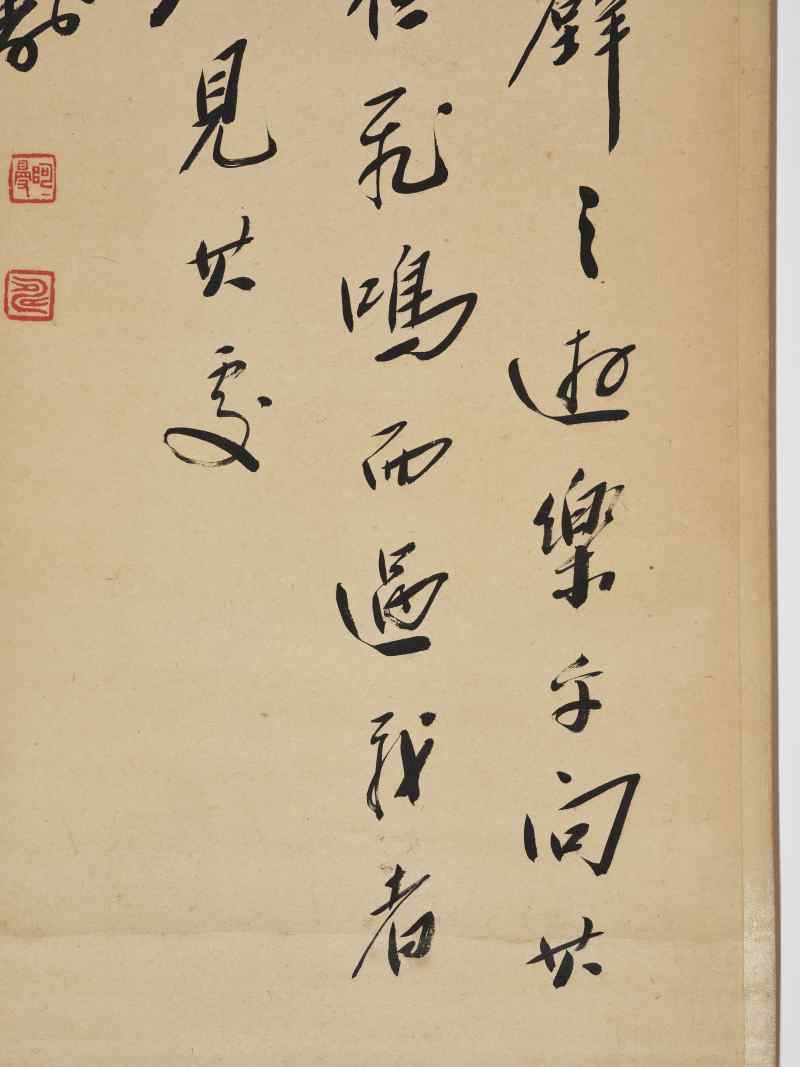 壁之遊樂乎問其
飛鳴而過我者
見其處
阿曼